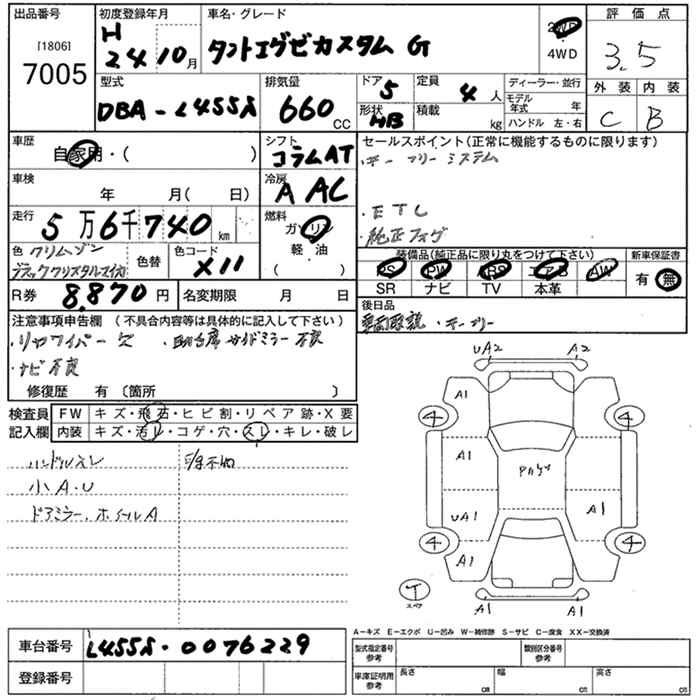 出品番号
[1806]
7005
初度登録年月
H
24 10月
車名・グレード
タントエグゼカスタム G
2WD
4WD
評価点
3.5
外装 内装
C B
型式
DBA-L455S
排気量
660 CC
ドア 5
形状 HB
定員 4 人
積載 kg
ディーラー・並行
モデル年式 年
ハンドル 左・右
車歴
自家用・( )
シフト
コラムAT
車検
年 月( 日)
冷房
A AC
走行
5万6千740 km
燃料
ガソリン
軽油
( )
色 クリムゾン
ブラッククリスタルマイカ
色替
色コード
X11
R券 8,870 円
名変期限 月 日
セールスポイント(正常に機能するものに限ります)
・キーフリーシステム
・ETC
・純正フォグ
装備品(純正品に限り丸をつけて下さい)
PS PW ABS エアB AW
SR ナビ TV 本革
新車保証書
有・無
後日品
・キーフリー
注意事項申告欄 (不具合内容等は具体的に記入して下さい)
・リヤワイパー欠 ・助手席サイドミラー不良
・ナビ不良
修復歴 有 〔箇所 〕
検査員 FW キズ・飛石・ヒビ割・リペア跡・X要
記入欄 内装 キズ・汚レ・コゲ・穴・スレ・キレ・破レ
ハンドルスレ
小A.U
ドアミラー、ホイールA
UA2 A2
A1
4 4
A1
UA1 A1
4 4
A1 A1
T
スペア
A1 A1
A-キズ E-エクボ U-凹み W-補修跡 S-サビ C-腐食 XX-交換済
車台番号 L455S-0076229
登録番号
型式指定番号 参考
類別区分番号 参考
車庫証明用 参考
長さ cm
幅 cm
高さ cm